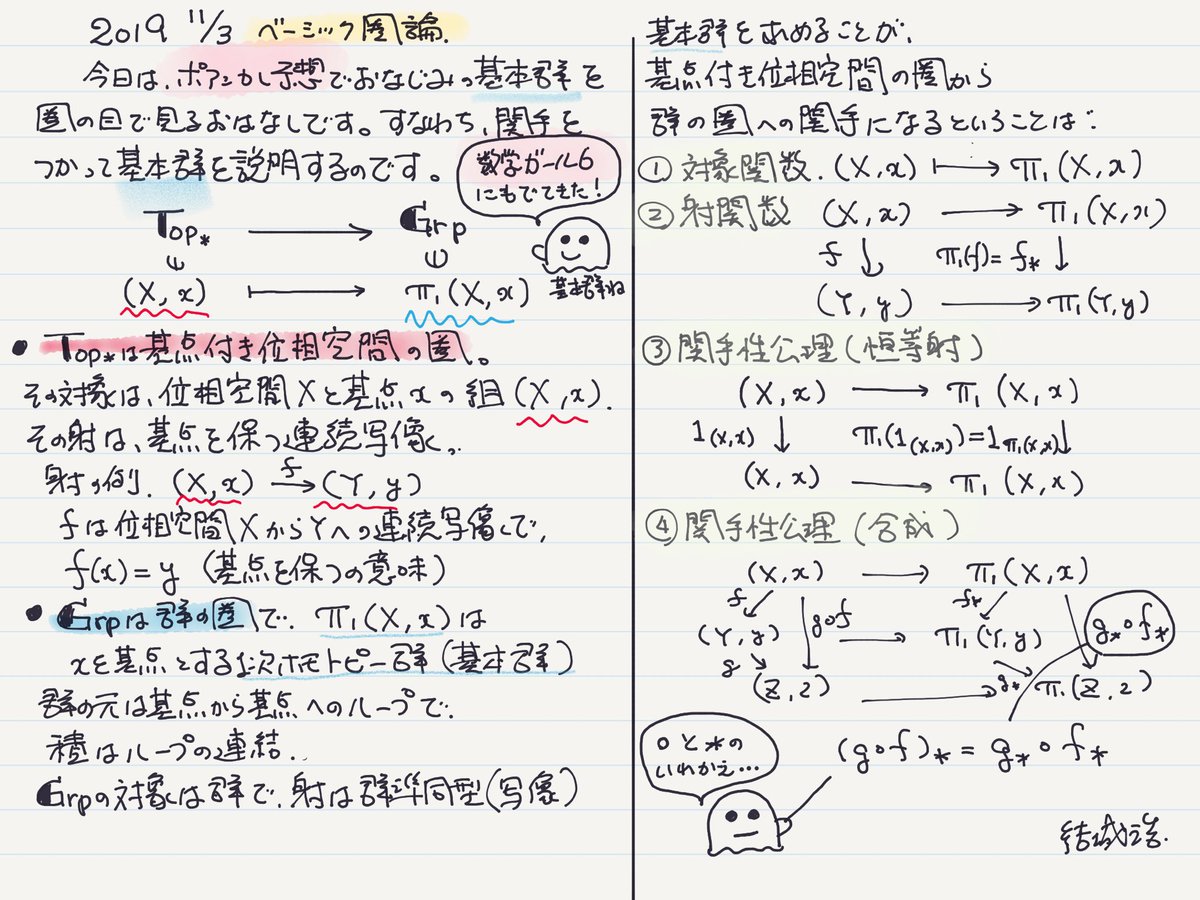 2019 11/3 ベーシック圏論.
今日は、ポアンカレ予想でおなじみの基本群を
圏の目で見るおはなしです。すなわち、関手を
つかって基本群を説明するのです。
数学ガール6
にもでてきた!
Top* → Grp
(X, x) ↦ π₁(X, x)
基本群ね
• Top*は基点付き位相空間の圏。
その対象は、位相空間Xと基点xの組(X, x).
その射は、基点を保つ連続写像。
射の例. (X, x) f→ (Y, y)
fは位相空間XからYへの連続写像で、
f(x) = y (基点を保つの意味)
• Grpは群の圏で. π₁(X, x)は
xを基点とする1次ホモトピー群(基本群)
群の元は基点から基点へのループで.
積はループの連結.
Grpの対象は群で、射は群準同型(写像)
基本群を求めることが、
基点付き位相空間の圏から
群の圏への関手になるということは:
① 対象関数. (X, x) ↦ π₁(X, x)
② 射関数 (X, x) → π₁(X, x)
f ↓ π₁(f) = f* ↓
(Y, y) → π₁(Y, y)
③ 関手性公理(恒等射)
(X, x) → π₁(X, x)
1(X,x) ↓ π₁(1(X,x)) = 1π₁(X,x) ↓
(X, x) → π₁(X, x)
④ 関手性公理(合成)
(X, x) → π₁(X, x)
f g∘f f*
(Y, y) → π₁(Y, y) g*∘f*
g g*
(Z, z) → π₁(Z, z)
○と*の
いれかえ…
(g∘f)* = g*∘f*
結城浩.